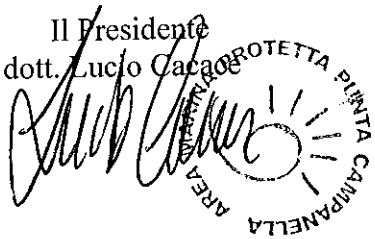 Il Presidente
dott. Lucio Cacace
AREA MARINA PROTETTA PUNTA CAMPANELLA